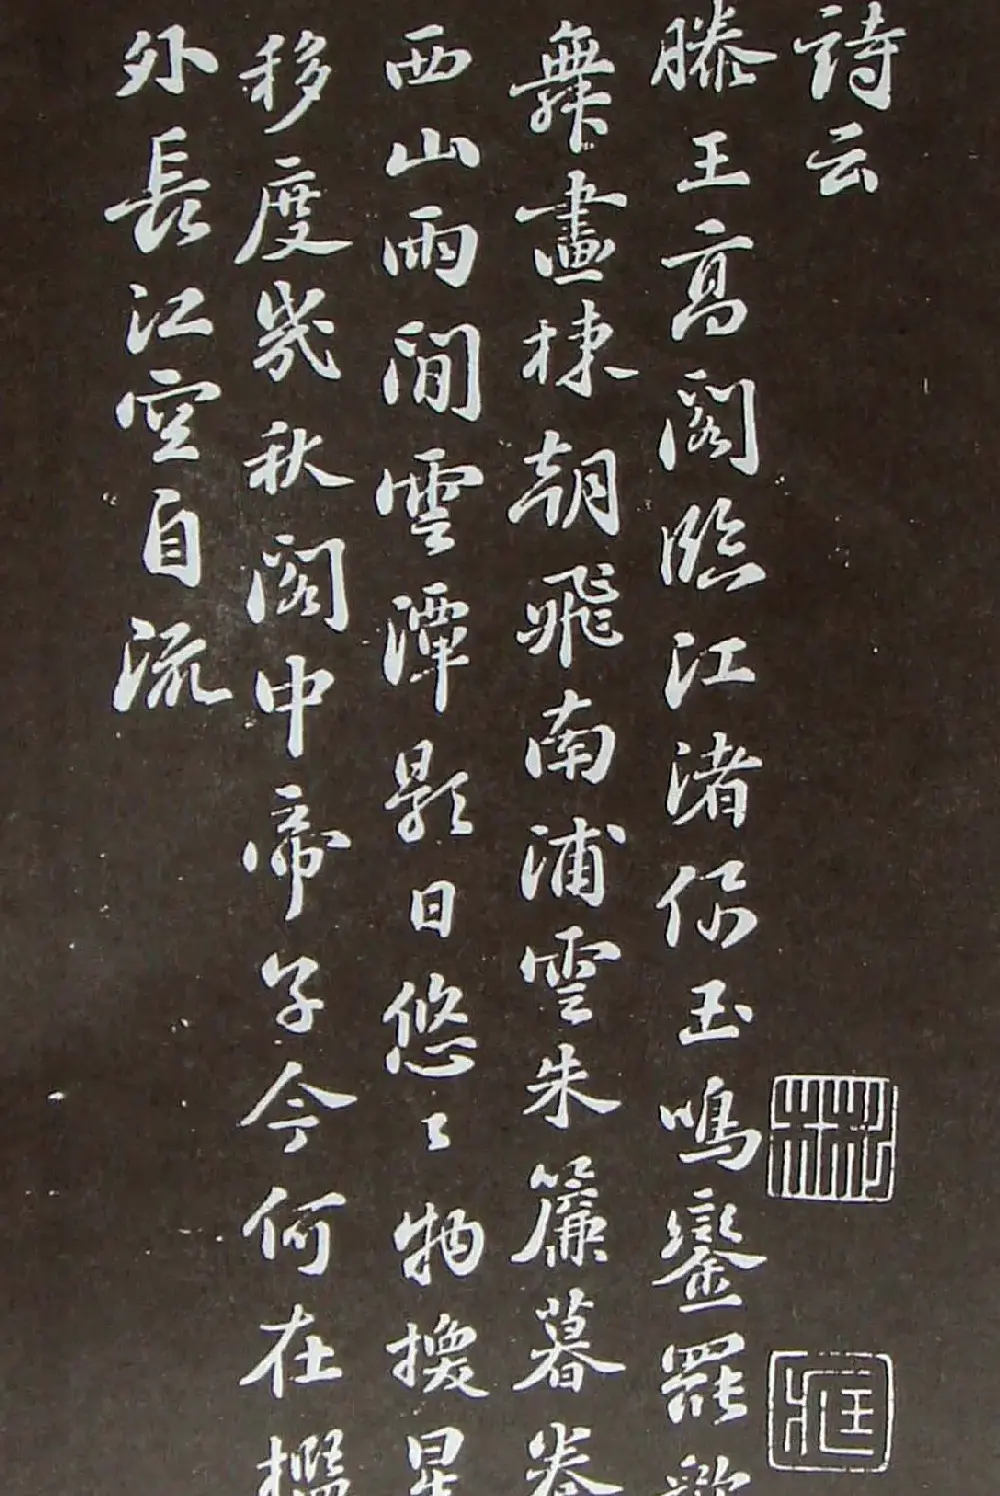 詩云
滕王高閣臨江渚佩玉鳴鑾罷歌
舞畫棟朝飛南浦雲朱簾暮卷
西山雨間雲潭影日悠〻物換星
移度幾秋閣中帝子今何在檻
外長江空自流